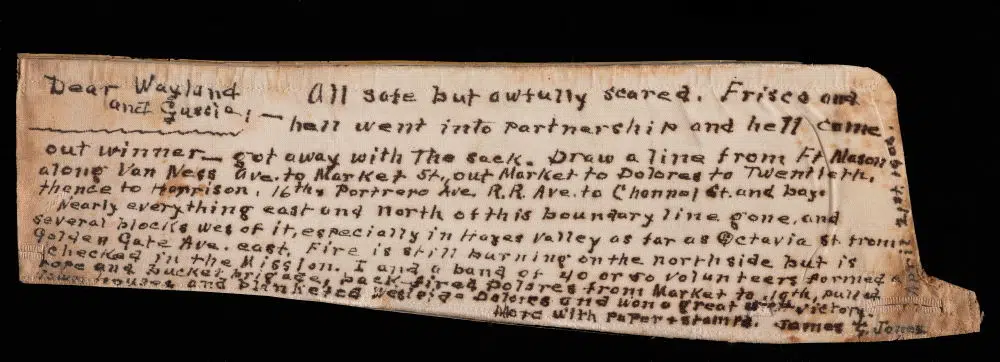 Dear Wayland
and Gussie, —
All safe but awfully scared. Frisco and
hell went into partnership and hell came
out winner — got away with The sack. Draw a line from Ft Mason
along Van Ness Ave. to Market St., out Market to Dolores to Twentieth,
thence to Harrison, 16th, Portrero Ave. R.R. Ave. to Channel St. and bay.
Nearly everything east and north of this boundary line gone, and
several blocks wes of it, especially in Hayes Valley as far as Octavia St. from
Golden Gate Ave. east. Fire is still burning on the northside but is
checked in the Mission. I and a band of 40 or 50 volunteers formed a
rope and bucket brigade, back-fired Dolores from Market to 19th, pulled
down houses and blanketed westside Dolores and won a great victory.
More with paper + stamps. James G. Jones